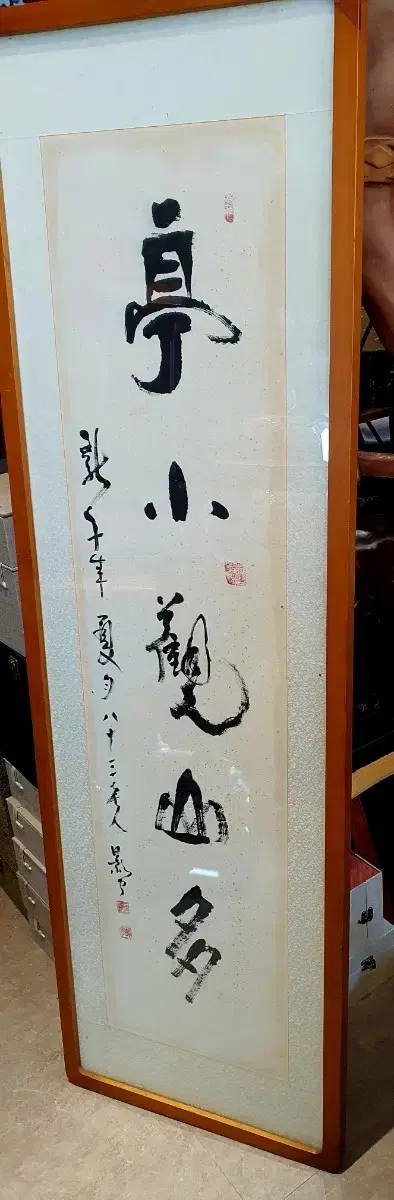 亭小觀山多
新千年夏月八十三老人